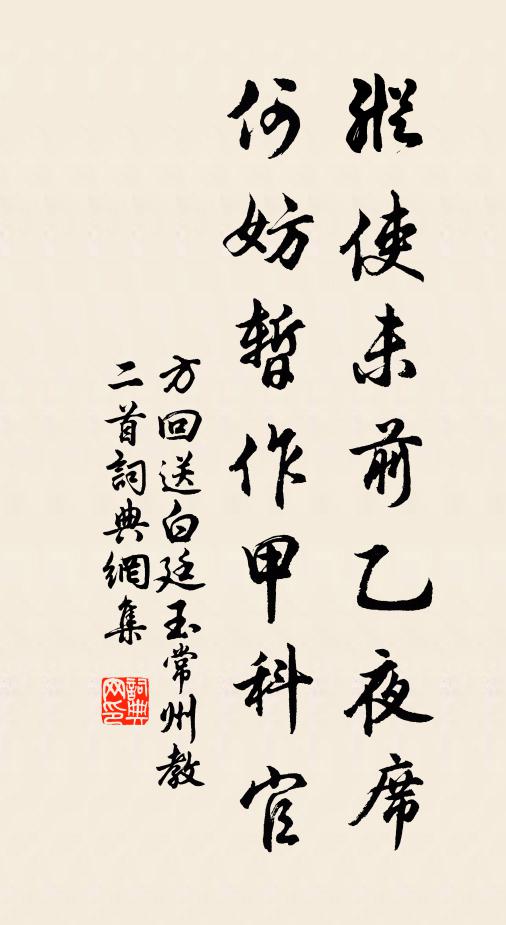 縱使未前乙夜席
何妨暫作甲科官
方回送白廷玉常州教
二首詞典網集
詞典
网印